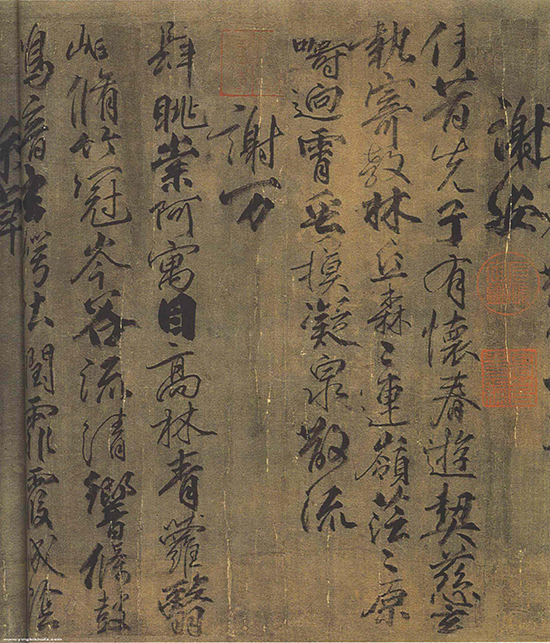 謝安
伊昔先子有懷春遊契慈言
執寄敖林丘森〻連嶺茫〻原
疇迥霄垂模凝泉散流
謝万
肆眺崇阿寓目高林青蘿翳
岫脩竹冠岑谷流清響條鼓
鳴音玄崿吐潤霏霧成陰